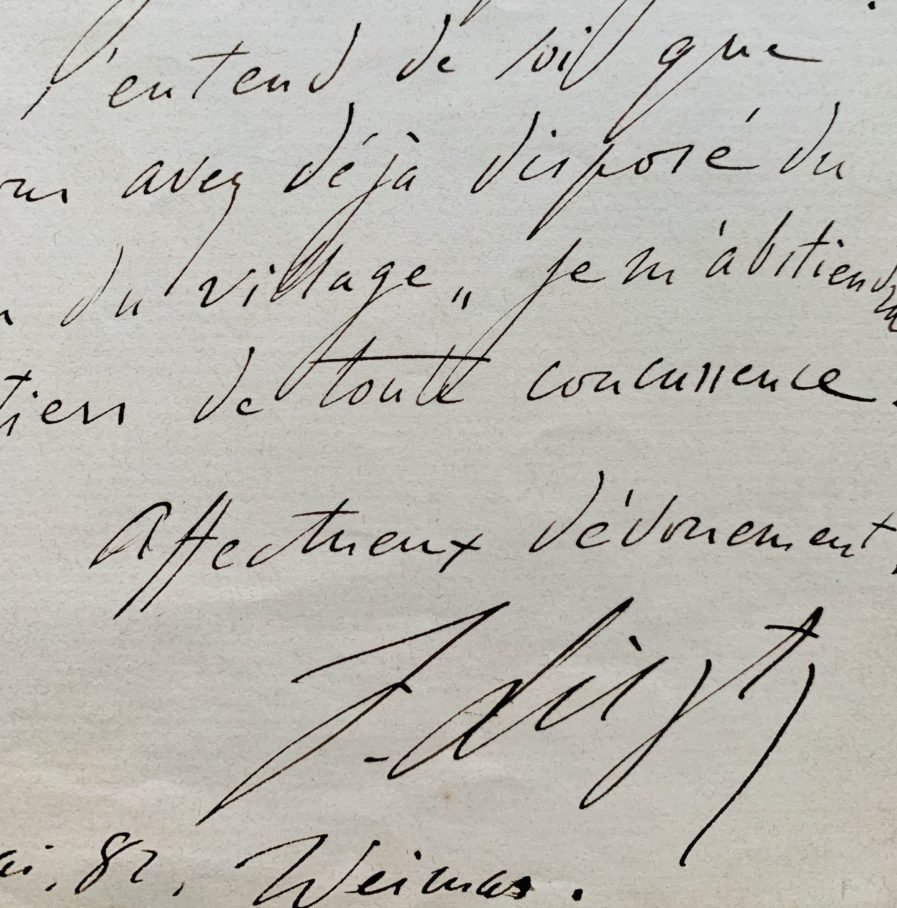 s'entend de soi que
ous avez déjà disposé du
n du village„ je m'abstiendrai
tiers de toute concurrence.
Affectueux dévouement,
F. Liszt
ai, 82, Weimar.